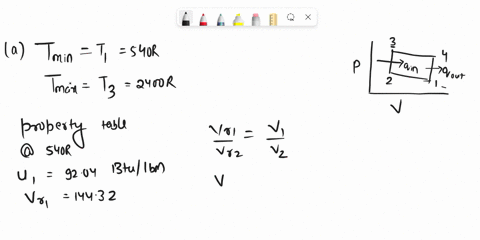 (a) Tmin = T1 = 540R
Tmax = T3 = 2400R
property table
@ 540R
u1 = 92.04 Btu/lbm
Vr1 = 144.32
Vr1/Vr2 = V1/V2
V
P
3
4
qin
qout
2
1
V